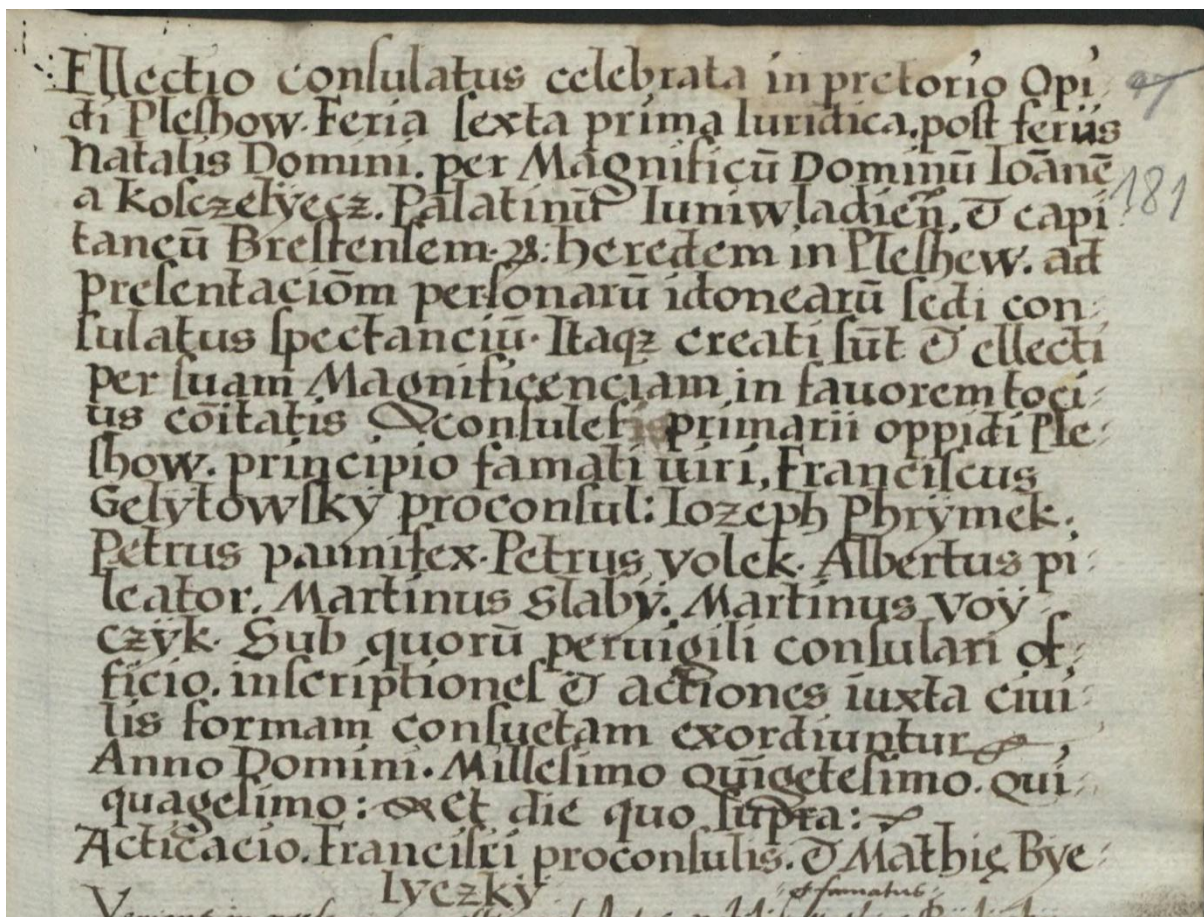 Ellectio consulatus celebrata in pretorio Opi
di Pleshow. Feria sexta prima Iuridica. post feriis
Natalis Domini. per Magnificū Dominū Ioānē
181
a Kosczelyecz. Palatinū Iuniwladień, & capi
taneū Brestensem. heredem in Pleshew. ad
presentaciōm personarū idonearū sedi con
sulatus spectanciū. Itaqz creati sūt & ellecti
per suam Magnificenciam in fauorem toci
us cōitatis consules primarii oppidi Ple
show. principio famati uiri, Franciscus
Gelytowsky proconsul: Iozeph Phrÿmek.
Petrus pannifex. Petrus volek. Albertus pi
leator. Martinus Slabÿ. Martinus Voÿ
czÿk. Sub quorū peruigili consulari of
ficio. inscriptiones & actiones iuxta ciui
lis formam consuetam exordiuntur
Anno Domini. Millesimo qūigetesimo. qui
quagesimo: et die quo supra:
Acticacio. Francisci proconsulis. & Mathię Bye
lyczkÿ
famatus